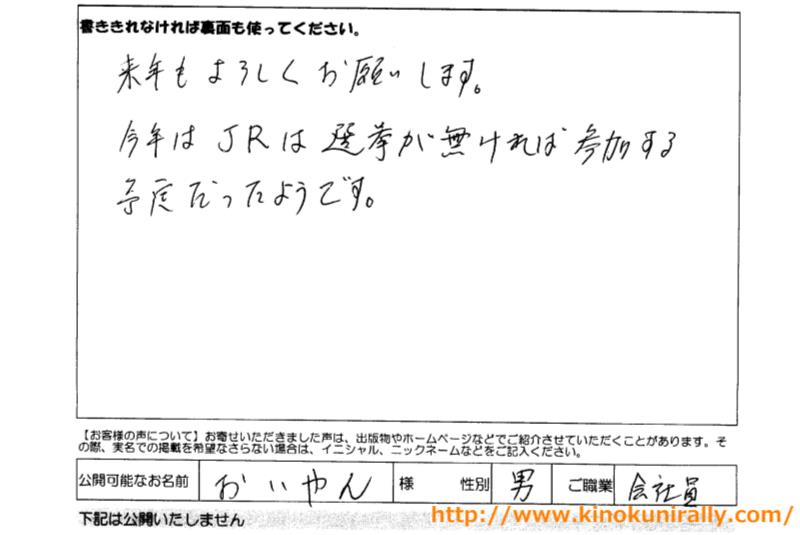 書ききれなければ裏面も使ってください。
来年もよろしくお願いします。
今年はJRは選挙が無ければ参加する
予定だったようです。
【お客様の声について】お寄せいただきました声は、出版物やホームページなどでご紹介させていただくことがあります。そ
の際、実名での掲載を希望なさらない場合は、イニシャル、ニックネームなどをご記入ください。
公開可能なお名前 おいやん 様 性別 男 ご職業 会社員
下記は公開いたしません
http://www.kinokunirally.com/